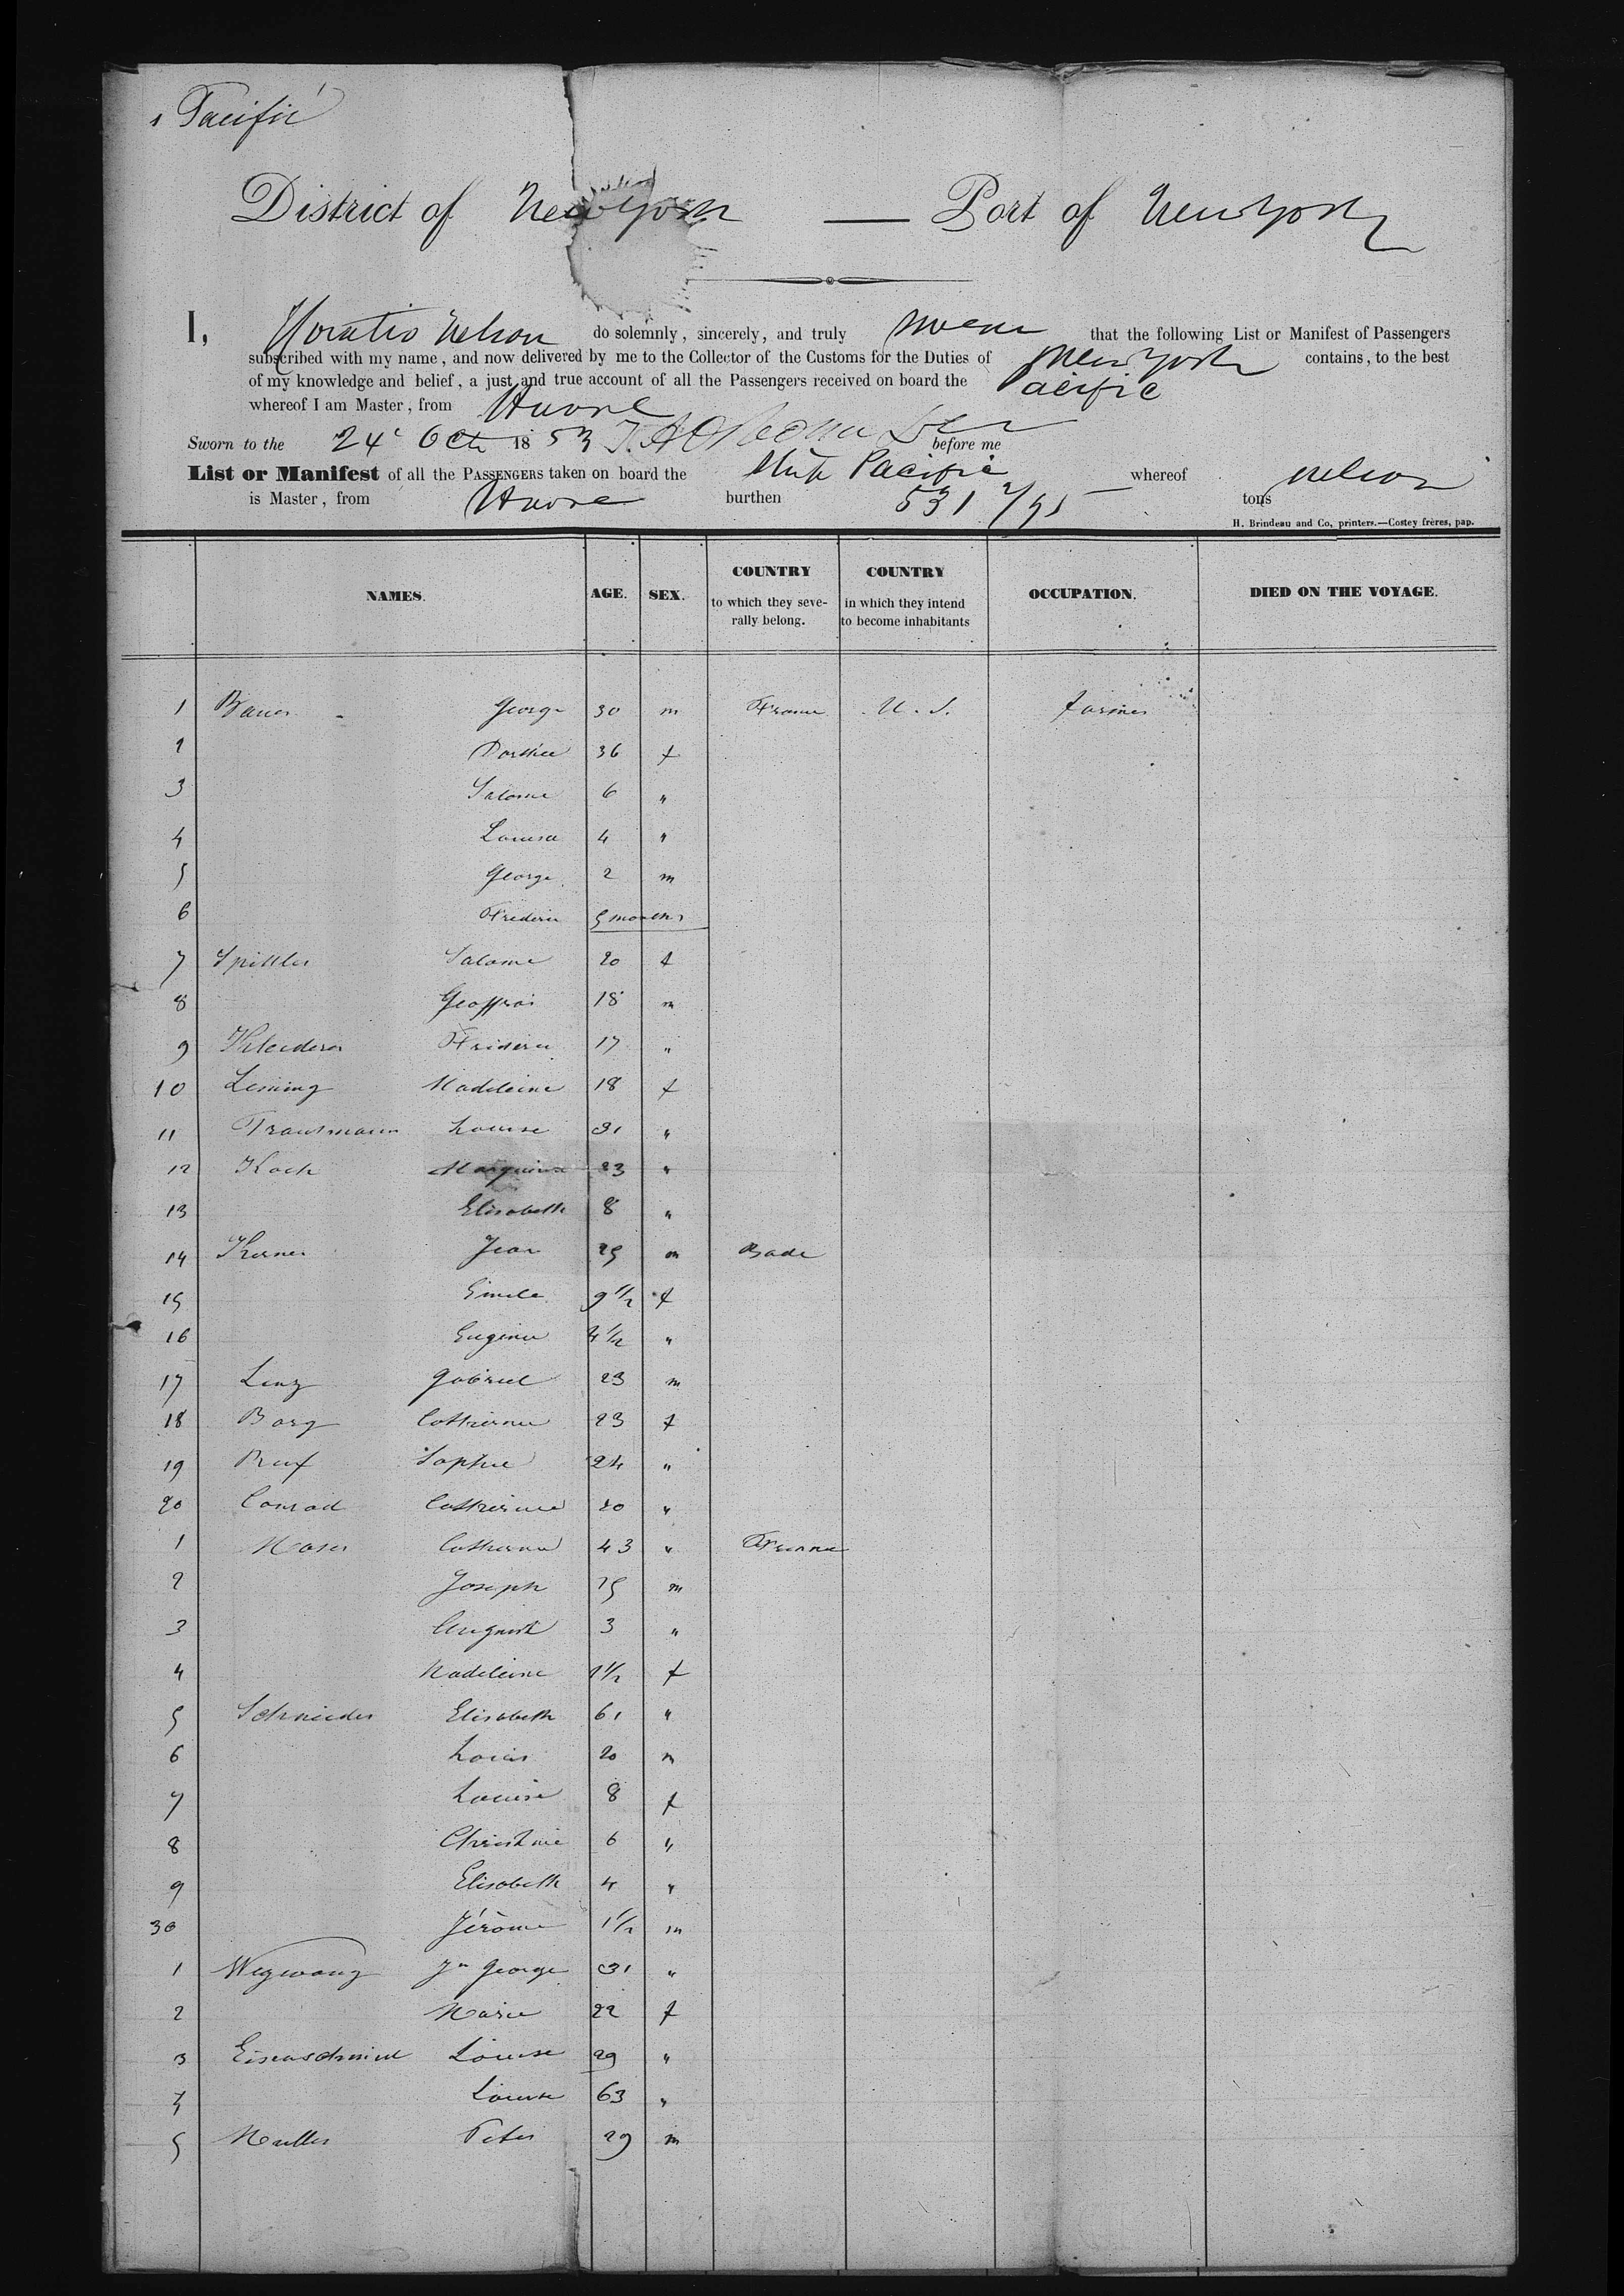 Pacific
District of New York — Port of New York
I, Horatio Nelson do solemnly, sincerely, and truly swear that the following List or Manifest of Passengers
subscribed with my name, and now delivered by me to the Collector of the Customs for the Duties of New York contains, to the best
of my knowledge and belief, a just and true account of all the Passengers received on board the Pacific
whereof I am Master, from Havre
Sworn to the 24 Oct 1853 before me
List or Manifest of all the PASSENGERS taken on board the Ship Pacific whereof Nelson
is Master, from Havre burthen 531 tons
H. Brindeau and Co, printers.—Costey frères, pap.
NAMES. AGE. SEX. COUNTRY to which they severally belong. COUNTRY in which they intend to become inhabitants OCCUPATION. DIED ON THE VOYAGE.
1 Bauer George 30 m France U. S. farmer
2 Dorthée 36 f
3 Salome 6 "
4 Louisa 4 "
5 George 2 m
6 Frederic 5 months
7 Spittler Salome 20 f
8 Geoffroi 18 m
9 Frideric 17 "
10 Madeleine 18 f
11 Trautmann Louise 31 "
12 Koch 23 "
13 Elisabeth 8 "
14 Kerner Jean 25 m Bade
15 Emele 9 1/2 f
16 Eugenie 4 1/2 "
17 Lenz Gabriel 23 m
18 Barg Catherine 23 f
19 Ruf Sophie 24 "
20 Conrad Catherine 20 "
1 Moser Catherine 43 " France
2 Joseph 15 m
3 August 3 "
4 Madeleine 1 1/2 f
5 Schneider Elisabeth 61 "
6 Louis 20 m
7 Louise 8 f
8 Christine 6 "
9 Elisabeth 4 "
30 Jérôme 1 1/2 m
1 Wegwang Jn George 31 "
2 Marie 22 f
3 Eisenschmied Louise 29 "
4 Louise 63 "
5 Muller Peter 29 m